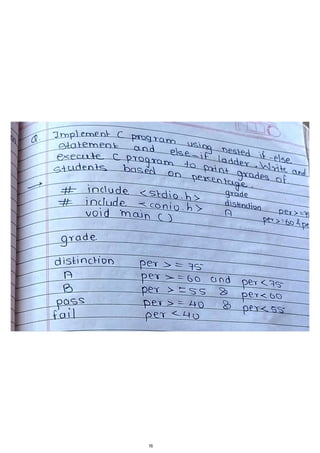 Q. Implement C program using nested if-else
statement and else-if ladder. Write and
execute C program to print grades of
students based on percentage.
→ # include <stdio.h> grade
# include <conio.h> distinction per>=
void main () A per>=60 &
grade
distinction per >= 75
A per >= 60 and per<75
B per >= 55 & per<60
pass per >= 40 & per<55
fail per < 40